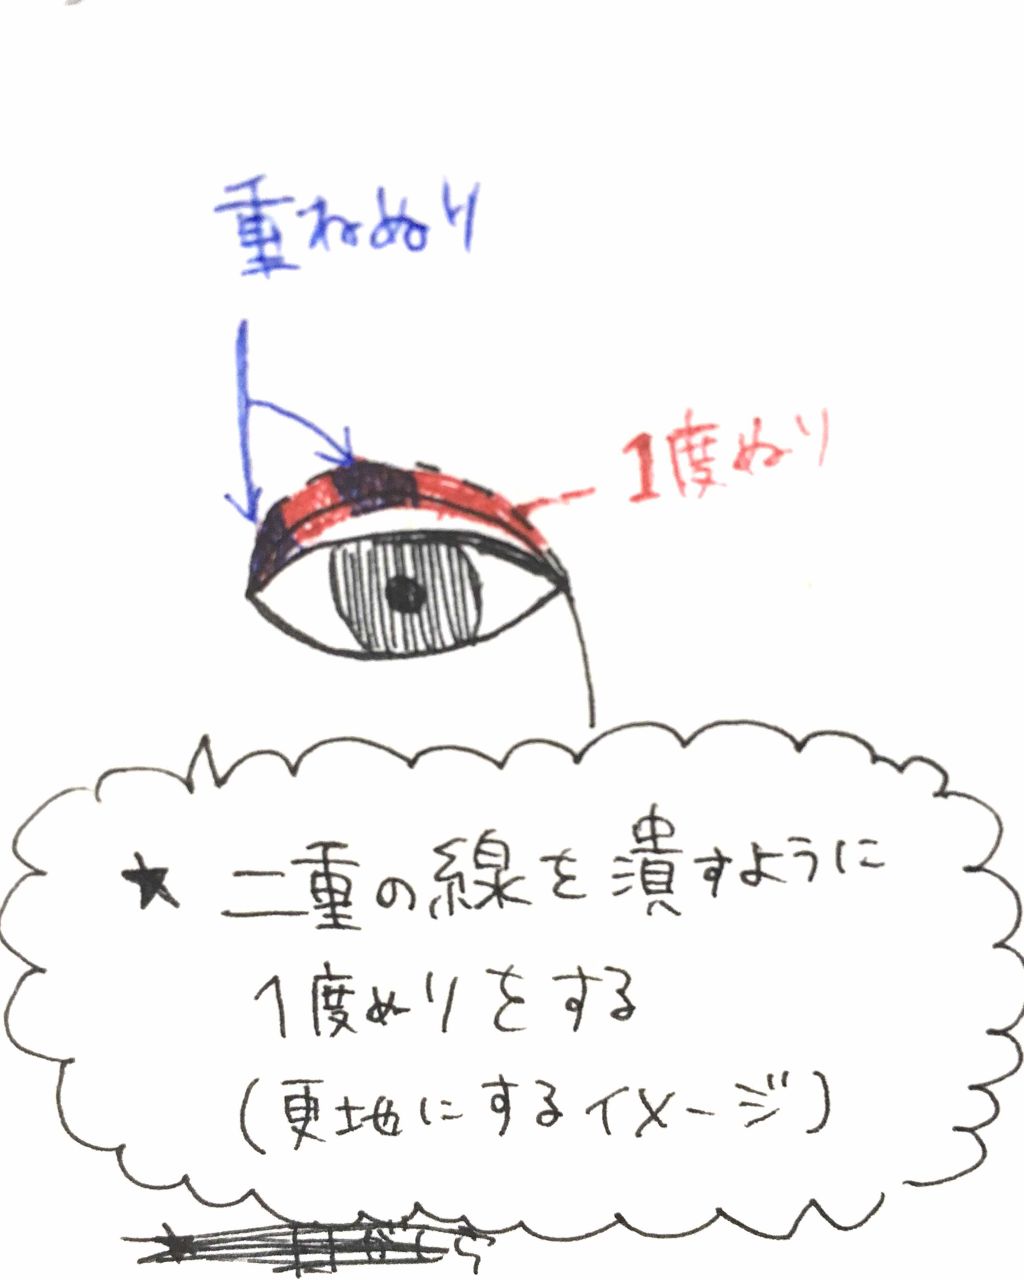 重ねぬり
1度ぬり
★ 二重の線を潰すように
1度ぬりをする
(更地にするイメージ)